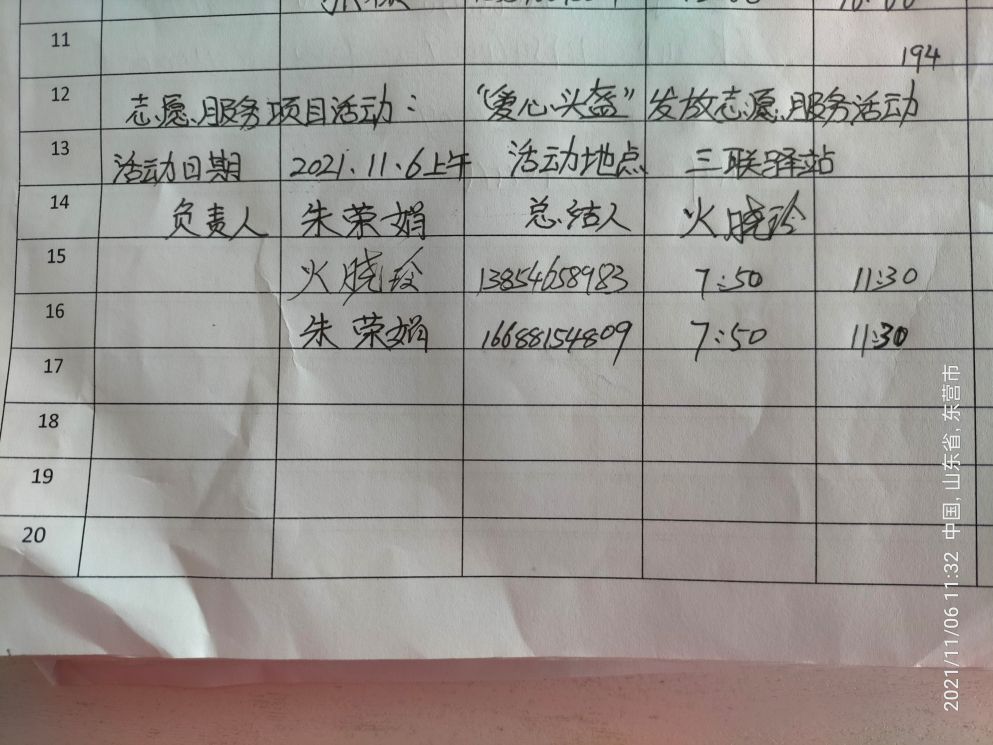 11
194
12 志愿服务项目活动： “爱心头盔” 发放志愿服务活动
13 活动日期 2021.11.6上午 活动地点 三联驿站
14 负责人 朱荣娟 总结人 火晓玲
15 火晓玲 13854658983 7:50 11:30
16 朱荣娟 16688154809 7:50 11:30
17
18
19
20
2021/11/06 11:32 中国, 山东省, 东营市